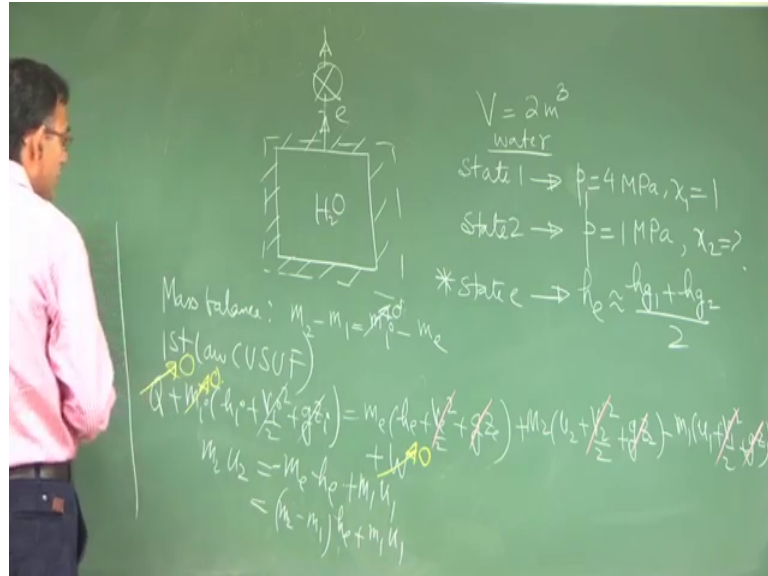 e
H₂O
V = 2m³
water
State 1 → p = 4 MPa, x₁ = 1
State 2 → p = 1 MPa, x₂ = ?
* State e → hₑ ≈ (hg₁ + hg₂)/2
Mass balance: m₂ - m₁ = mᵢ→0 - mₑ
1st law (USUF)
Q→0 + mᵢ→0 (hᵢ + Vᵢ²/2 + gzᵢ) = mₑ(hₑ + Vₑ²/2 + gzₑ) + m₂(u₂ + V₂²/2 + gz₂) - m₁(u₁ + V₁²/2 + gz₁)
+ W→0
m₂ u₂ = -mₑ hₑ + m₁ u₁
= (m₂ - m₁) hₑ + m₁ u₁